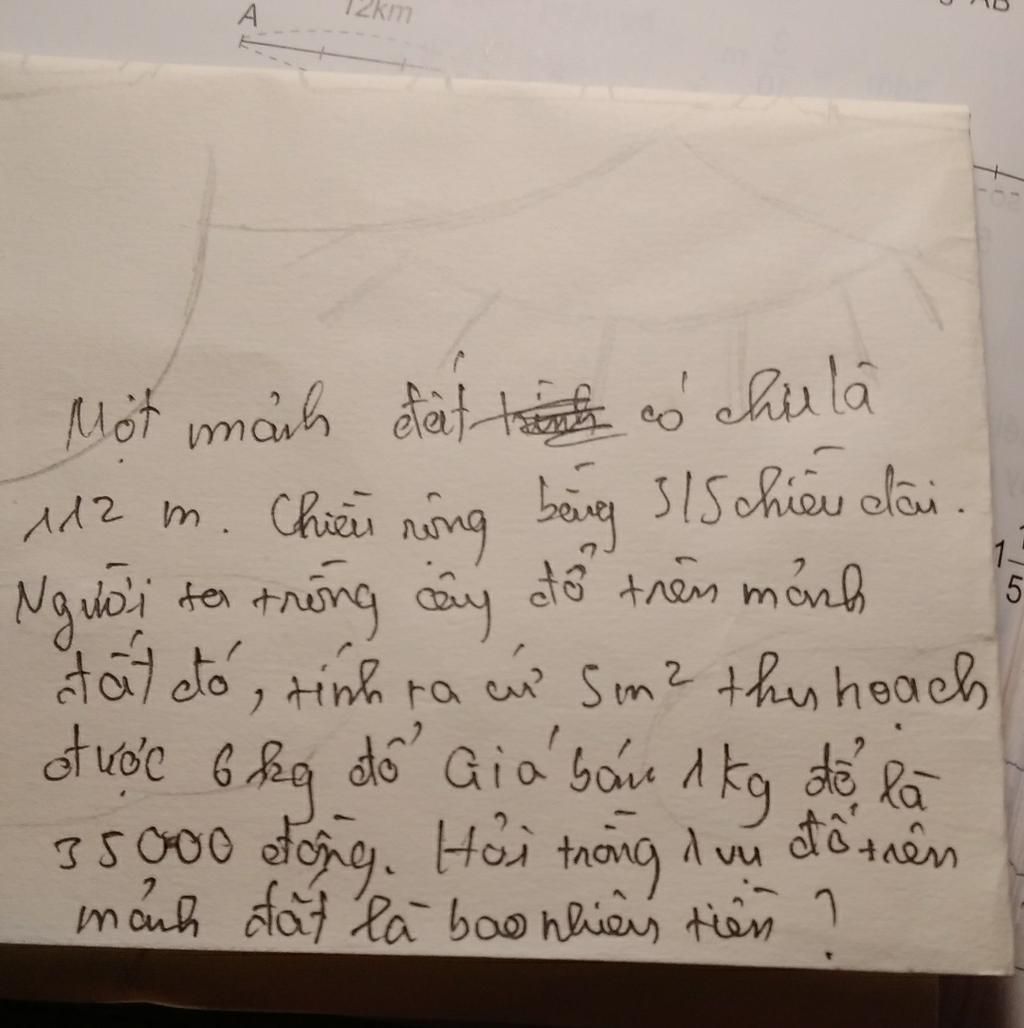 A 12km
AB
Một mảnh đất có chu là
112 m. Chiều rộng bằng 3/5 chiều dài.
Người ta trồng cây đỗ trên mảnh
đất đó, tính ra cứ 5m² thu hoạch
được 6 kg đỗ Giá bán 1kg đỗ là
35000 đồng. Hỏi trồng 1 vụ đỗ trên
mảnh đất là bao nhiêu tiền ?
1
5